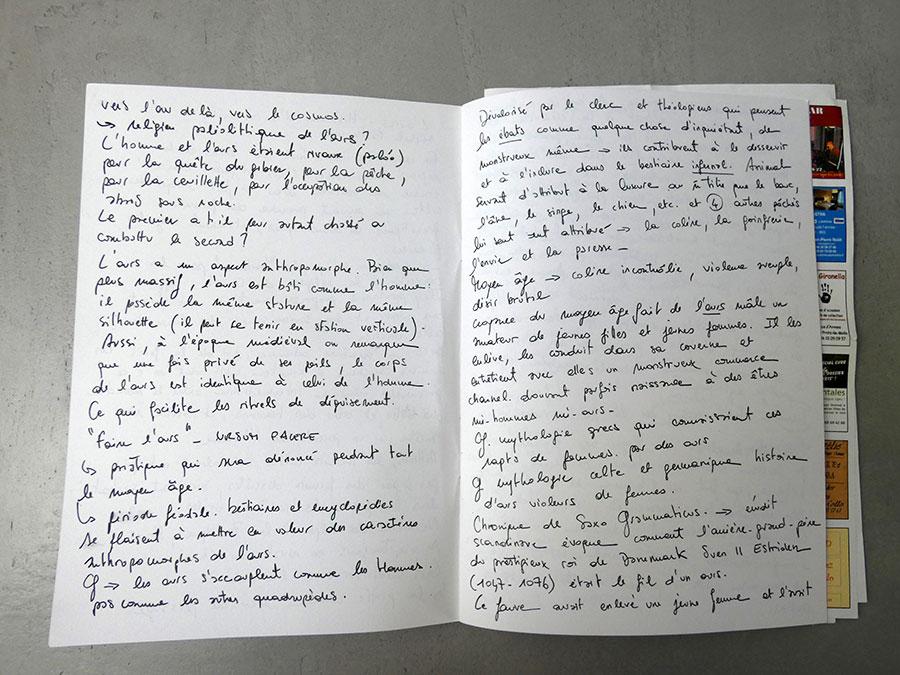 vers l'au delà, vers le cosmos.
↳ religion paléolithique de l'ours ?
L'homme et l'ours étaient rivaux (paléo)
pour la quête du gibier, par la pêche,
par la cueillette, par l'occupation des
abris sous roche.
Le premier a t'il pour autant chassé ou
combattu le second ?
L'ours a un aspect anthropomorphe. Bien que
plus massif, l'ours est bâti comme l'homme :
il possède la même stature et la même
silhouette (il peut se tenir en station verticale).
Aussi, à l'époque médiéval on remarque
que une fois privé de ses poils, le corps
de l'ours est identique à celui de l'homme.
Ce qui facilite les rituels de déguisement.
"faire l'ours" _ URSUM FACERE
↳ pratique qui sera dénoncé pendant tout
le moyen âge.
↳ période féodale. bestiaires et encyclopédies
se plaisent à mettre en valeur des caractères
anthropomorphes de l'ours.
Cf → les ours s'accouplent comme les Hommes.
pas comme les autres quadrupèdes.
Dévalorisé par le clerc et théologiens qui pensent
les ébats comme quelque chose d'inquiétant, de
monstrueux même → ils contribuent à le desservir
et à l'inclure dans le bestiaire infernal. Animal
servant d'attribut à la luxure au m̂ titre que le bouc,
l'âne, le singe, le chien, etc. et 4 autres péchés
lui sont attribué → la colère, la goinfrerie,
l'envie et la paresse _
Moyen âge → colère incontrôlée, violence aveugle,
désir brutal
croyance du moyen âge fait de l'ours mâle un
amateur de jeunes filles et jeunes femmes. Il les
enlève, les conduit dans sa caverne et
entretient avec elles un monstrueux commerce
charnel. donnant parfois naissance à des êtres
mi-hommes mi-ours _
Cf mythologie grecs qui connaissaient ces
rapts de femmes. par des ours
Cf mythologie celte et germanique histoire
d'ours violeurs de femmes.
Chronique de Saxo Grammaticus. →
scandinave évoque comment l'arrière-grand-père
du prestigieux roi de Danemark Sven II Estridsen
(1047-1076) était le fil d'un ours.
Ce fauve avait enlevé une jeune femme et l'avait
AR
Gironella
ntales